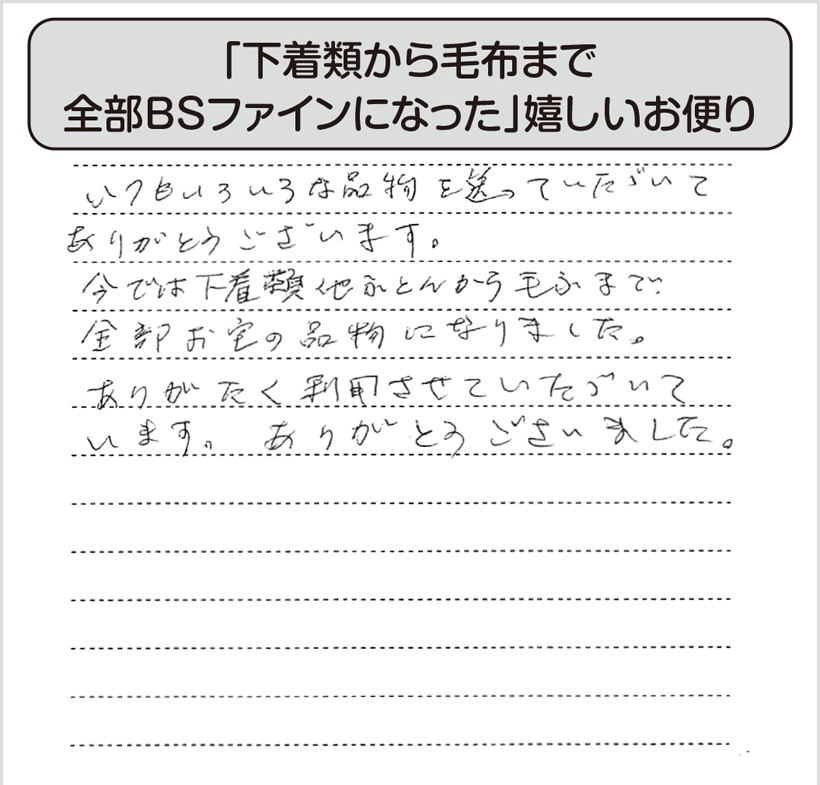 「下着類から毛布まで
全部BSファインになった」嬉しいお便り
いつもいろいろな品物を送っていただいて
ありがとうございます。
今では下着類他ふとんから毛ふまで
全部お宅の品物になりました。
ありがたく利用させていただいて
います。 ありがとうございました。